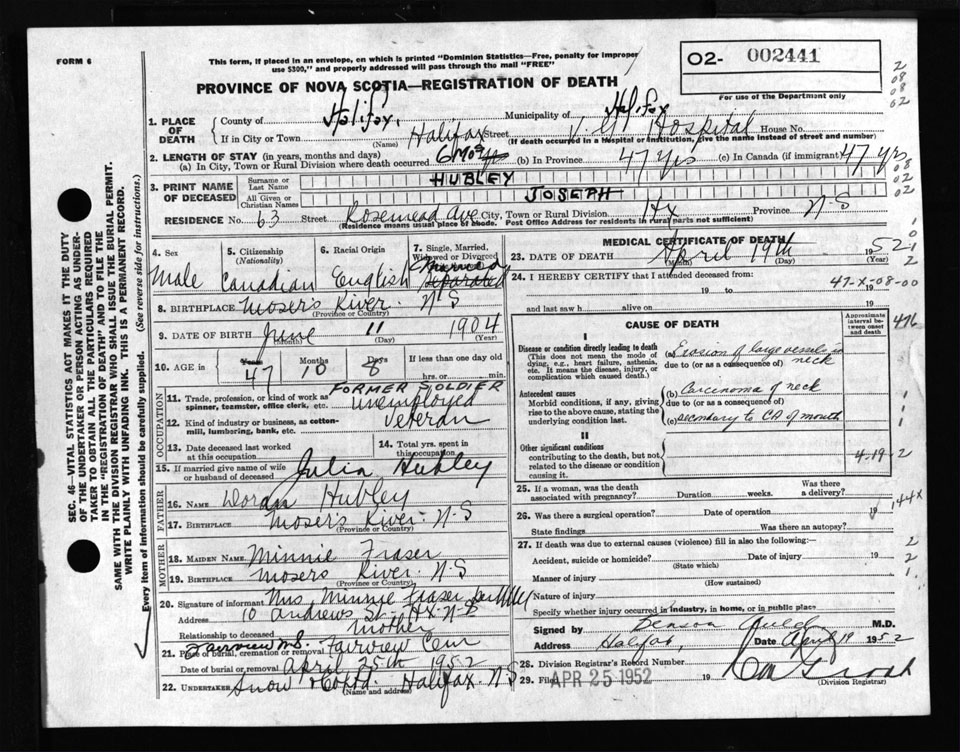 FORM 6
This form, if placed in an envelope, on which is printed "Dominion Statistics—Free, penalty for improper
use $300," and properly addressed will pass through the mail "FREE"
O2- 002441
For use of the Department only
2
08
08
02
PROVINCE OF NOVA SCOTIA—REGISTRATION OF DEATH
1. PLACE OF DEATH
County of Halifax, Municipality of Halifax
If in City or Town Halifax Street V.G. Hospital House No.
(Name) (If death occurred in a Hospital or Institution, give the name instead of street and number)
2. LENGTH OF STAY (in years, months and days)
(a) In City, Town or Rural Division where death occurred 6 mos (b) In Province 47 yrs (c) In Canada (if immigrant) 47 yrs
08
02
02
3. PRINT NAME OF DECEASED
Surname or Last Name HUBLEY
All Given or Christian Names JOSEPH
RESIDENCE No. 63 Street Rosemead Ave City, Town or Rural Division Hx Province N-S
(Residence means usual place of abode. Post Office Address for residents in rural parts not sufficient)
SEC. 46—VITAL STATISTICS ACT MAKES IT THE DUTY
OF THE UNDERTAKER OR PERSON ACTING AS UNDER-
TAKER TO OBTAIN ALL THE PARTICULARS REQUIRED
IN THE "REGISTRATION OF DEATH" AND TO FILE THE
SAME WITH THE DIVISION REGISTRAR WHO SHALL ISSUE THE BURIAL PERMIT.
WRITE PLAINLY WITH UNFADING INK. THIS IS A PERMANENT RECORD.
Every item of information should be carefully supplied. (See reverse side for instructions.)
4. Sex Male
5. Citizenship (Nationality) Canadian
6. Racial Origin English
7. Single, Married, Widowed or Divorced Married Separated
8. BIRTHPLACE Moser's River N-S
(Province or Country)
9. DATE OF BIRTH June 11 1904
(Month) (Day) (Year)
10. AGE in Years 47 Months 10 Days 8 If less than one day old hrs. or min.
OCCUPATION
11. Trade, profession, or kind of work as spinner, teamster, office clerk, etc. FORMER SOLDIER unemployed
12. Kind of industry or business, as cotton-mill, lumbering, bank, etc. Veteran
13. Date deceased last worked at this occupation
14. Total yrs. spent in this occupation
15. If married give name of wife or husband of deceased Julia Hubley
FATHER
16. NAME Doran Hubley
17. BIRTHPLACE Moser's River N-S
(Province or Country)
MOTHER
18. MAIDEN NAME Minnie Fraser
19. BIRTHPLACE Moser's River N-S
(Province or Country)
20. Signature of informant Mrs Minnie Fraser Hubley
Address 10 Andrews St. Hx N-S
Relationship to deceased mother
21. Place of burial, cremation or removal Fairview Cem
Fairview N.S.
Date of burial or removal April 25th 1952
22. UNDERTAKER Snow & Co Ltd. Halifax N-S
Name and address
MEDICAL CERTIFICATE OF DEATH
23. DATE OF DEATH April 19th 1952
(Month) (Day) (Year)
24. I HEREBY CERTIFY that I attended deceased from
19 to 19
47-X-08-00
and last saw h alive on 19
CAUSE OF DEATH
Approximate interval between onset and death
476
I
Disease or condition directly leading to death
(This does not mean the mode of dying, e.g., heart failure, asthenia, etc. It means the disease, injury, or complication which caused death.)
(a) Erosion of large vessels in neck
due to (or as a consequence of)
Antecedent causes
Morbid conditions, if any, giving rise to the above cause, stating the underlying condition last.
(b) Carcinoma of neck
due to (or as a consequence of)
(c) secondary to CA of mouth
II
Other significant conditions
contributing to the death, but not related to the disease or condition causing it.
4-19-2
25. If a woman, was the death associated with pregnancy? Duration weeks. Was there a delivery?
26. Was there a surgical operation? Date of operation 19
144X
State findings Was there an autopsy?
27. If death was due to external causes (violence) fill in also the following:—
Accident, suicide or homicide? Date of injury 19
(State which)
Manner of injury
(How sustained)
Nature of injury
Specify whether injury occurred in industry, in home, or in public place
Signed by M.D.
Address Halifax, Date April 19 1952
28. Division Registrar's Record Number
29. Filed APR 25 1952 19
(Division Registrar)